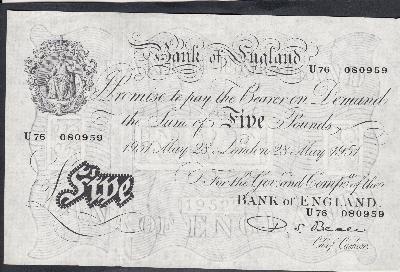 Bank of England
U76 080959
I Promise to pay the Bearer on Demand
the Sum of Five Pounds
U76 080959
1951 May 28 London 28 May 1951
For the Gov.r and Comp.a of the
£ Five
BANK OF ENGLAND.
U76 080959
Chief Cashier.